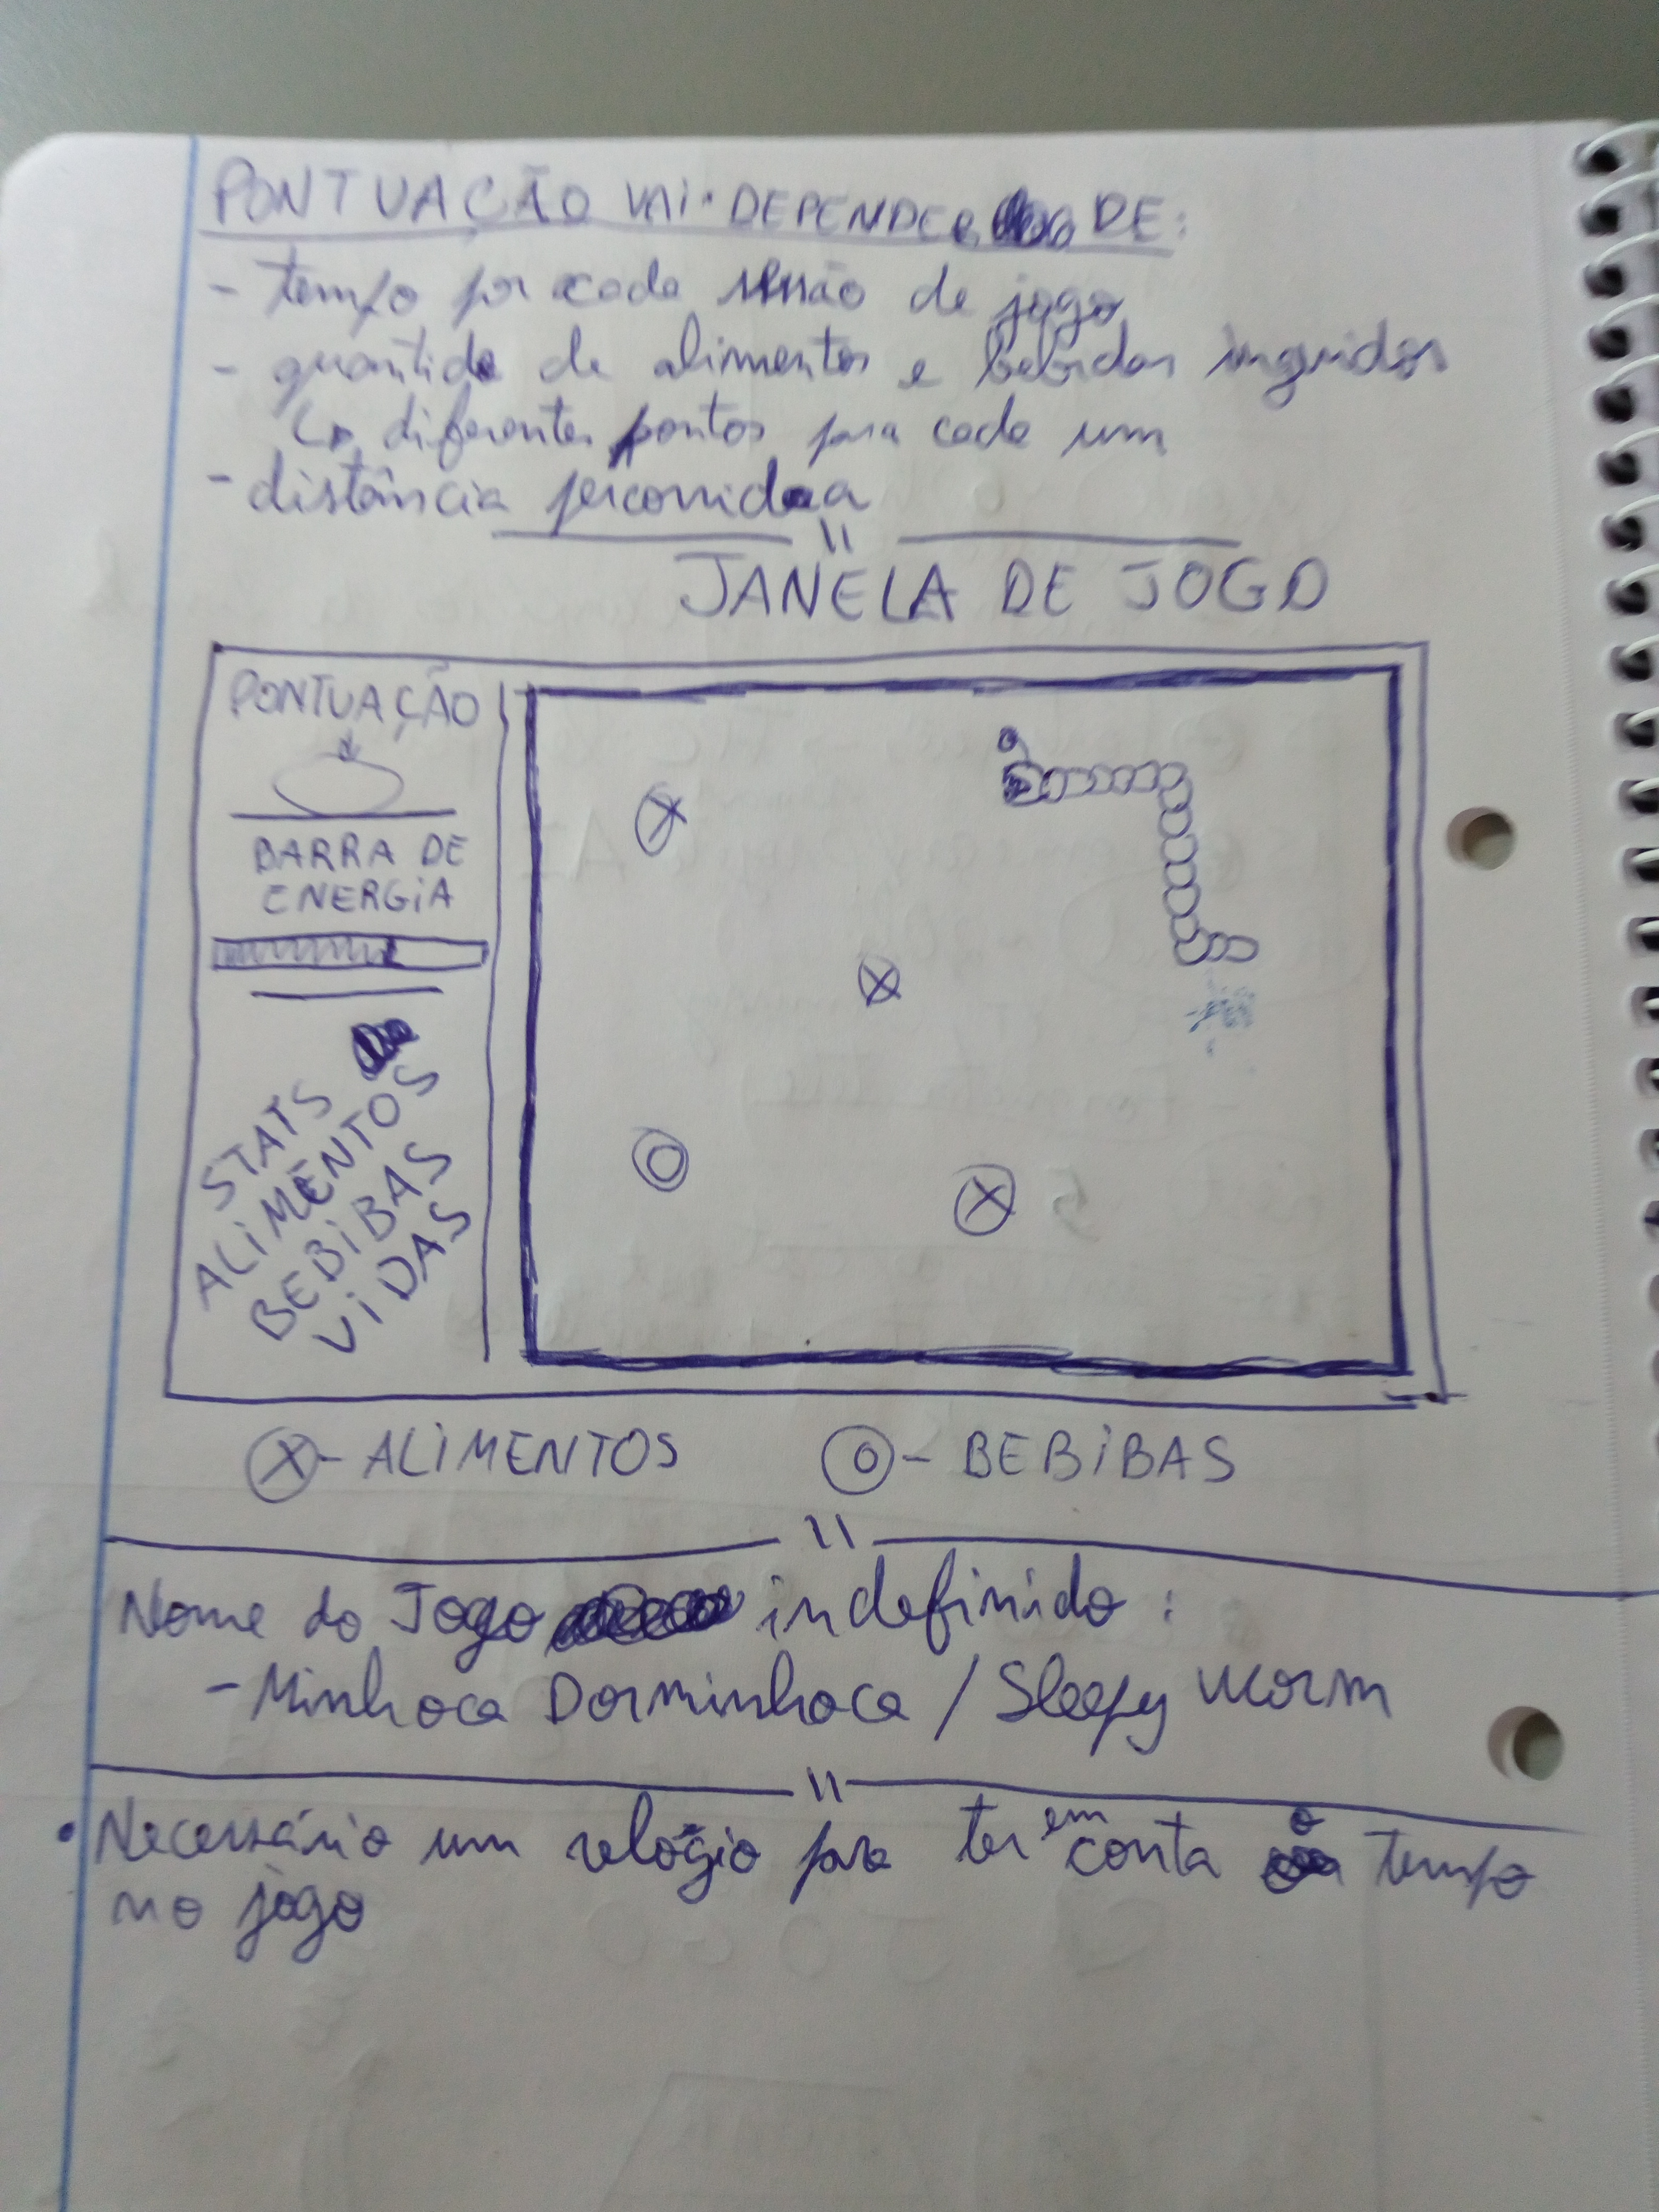 PONTUAÇÃO VAI DEPENDER DE:
- tempo por cada sessão de jogo
- quantide de alimentos e bebidas ingeridos
↳ diferentes pontos para cada um
- distância percorrida
JANELA DE JOGO
PONTUAÇÃO
BARRA DE
ENERGIA
STATS
ALIMENTOS
BEBIBAS
VIDAS
X - ALIMENTOS O - BEBIBAS
Nome do Jogo indefinido:
- Minhoca Dorminhoca / Sleepy Worm
• Necessário um relógio para ter em conta o tempo
no jogo